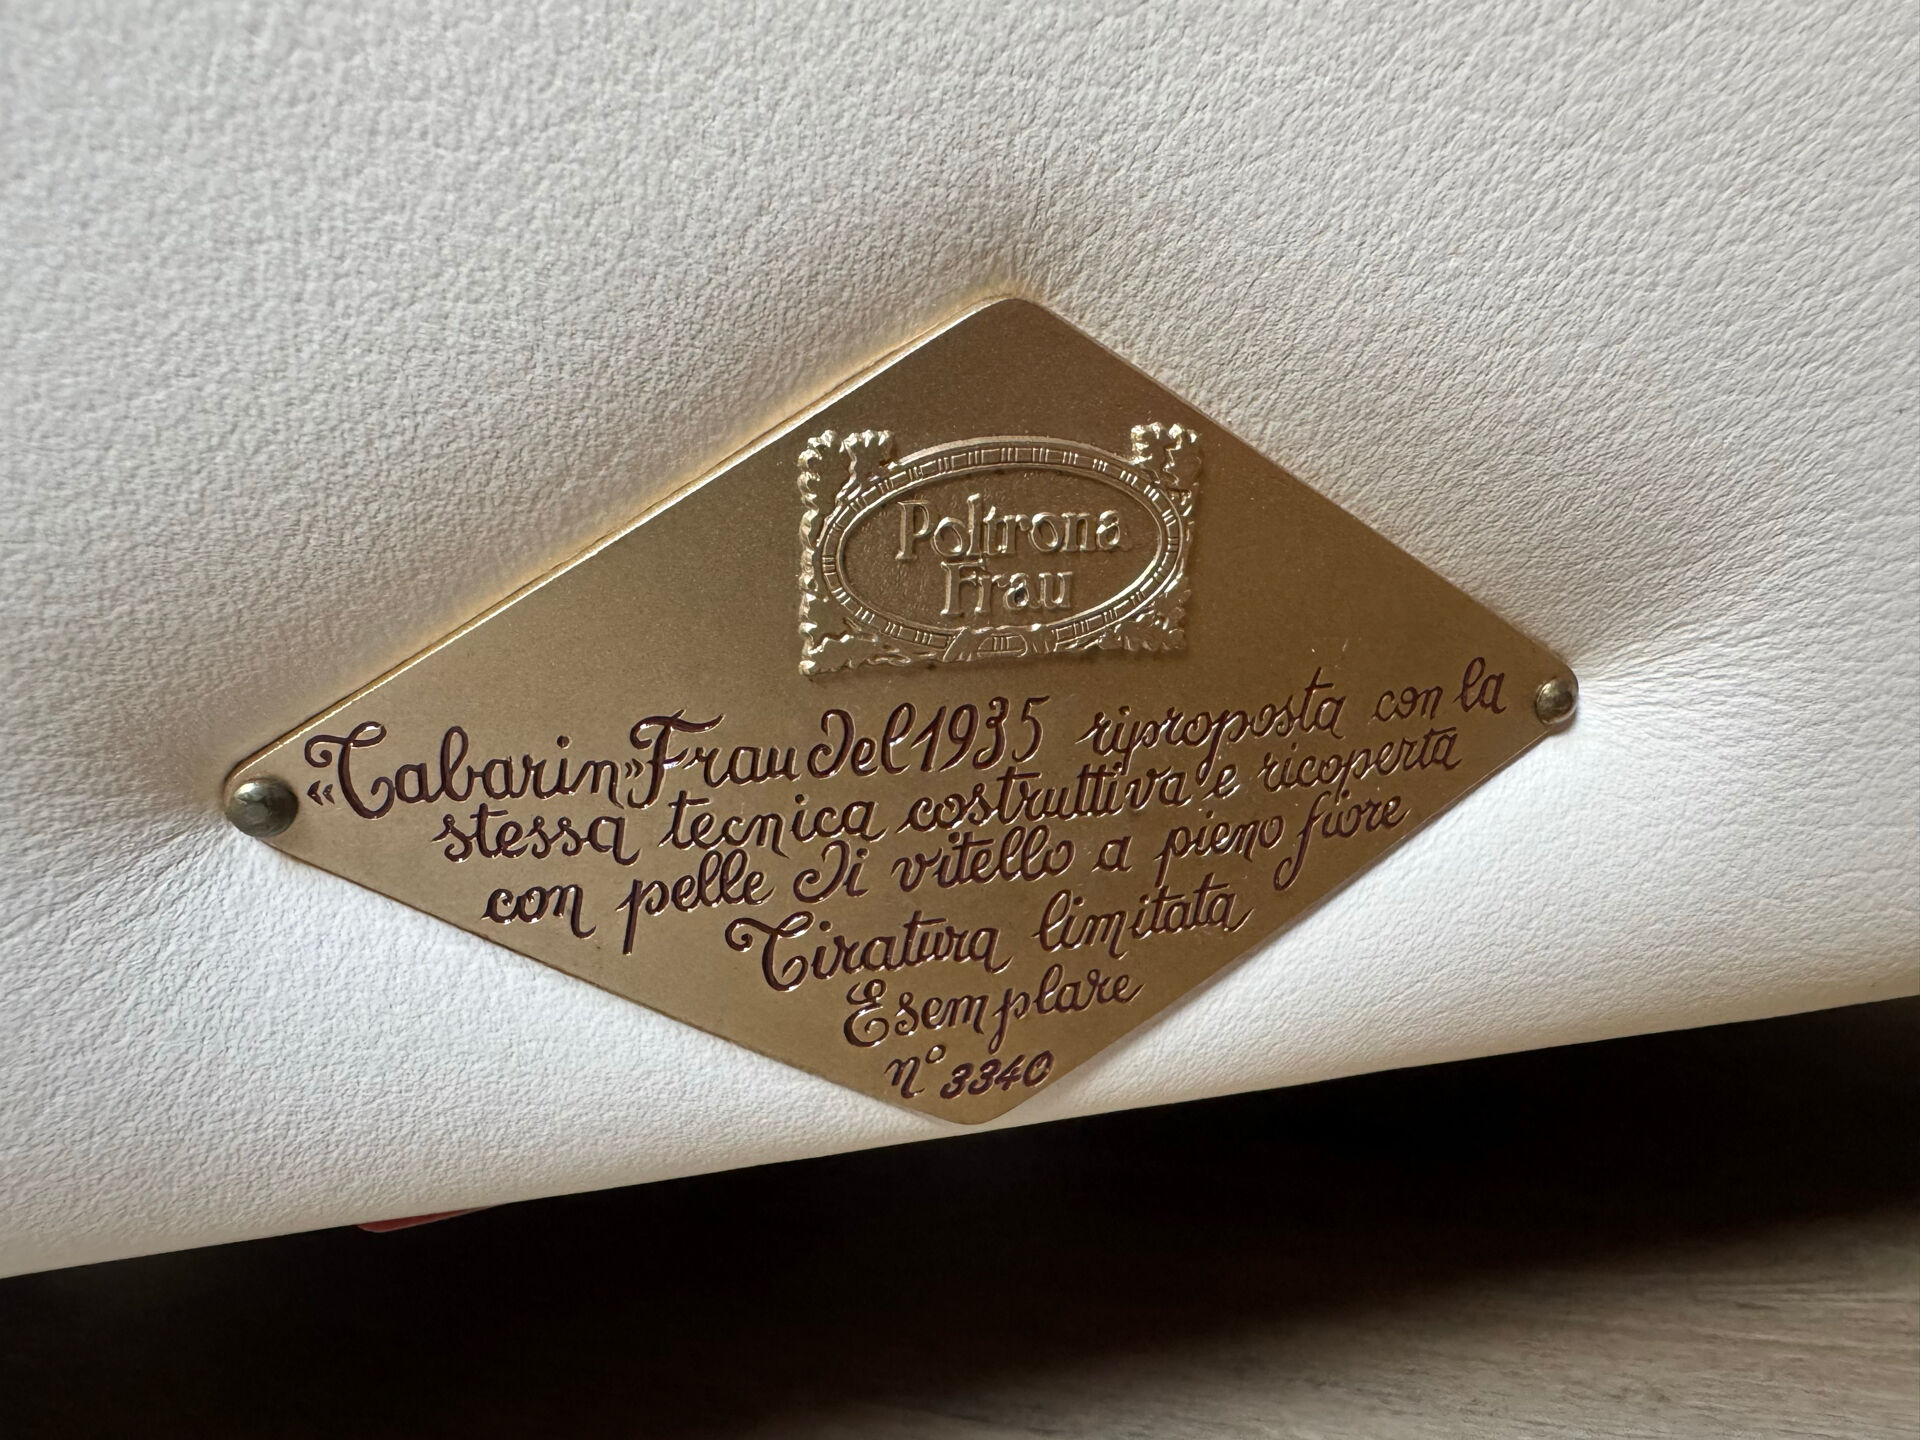 Poltrona
Frau
«Tabarin» Frau del 1935 riproposta con la
stessa tecnica costruttiva e ricoperta
con pelle di vitello a pieno fiore
Tiratura limitata
Esemplare
n° 3340